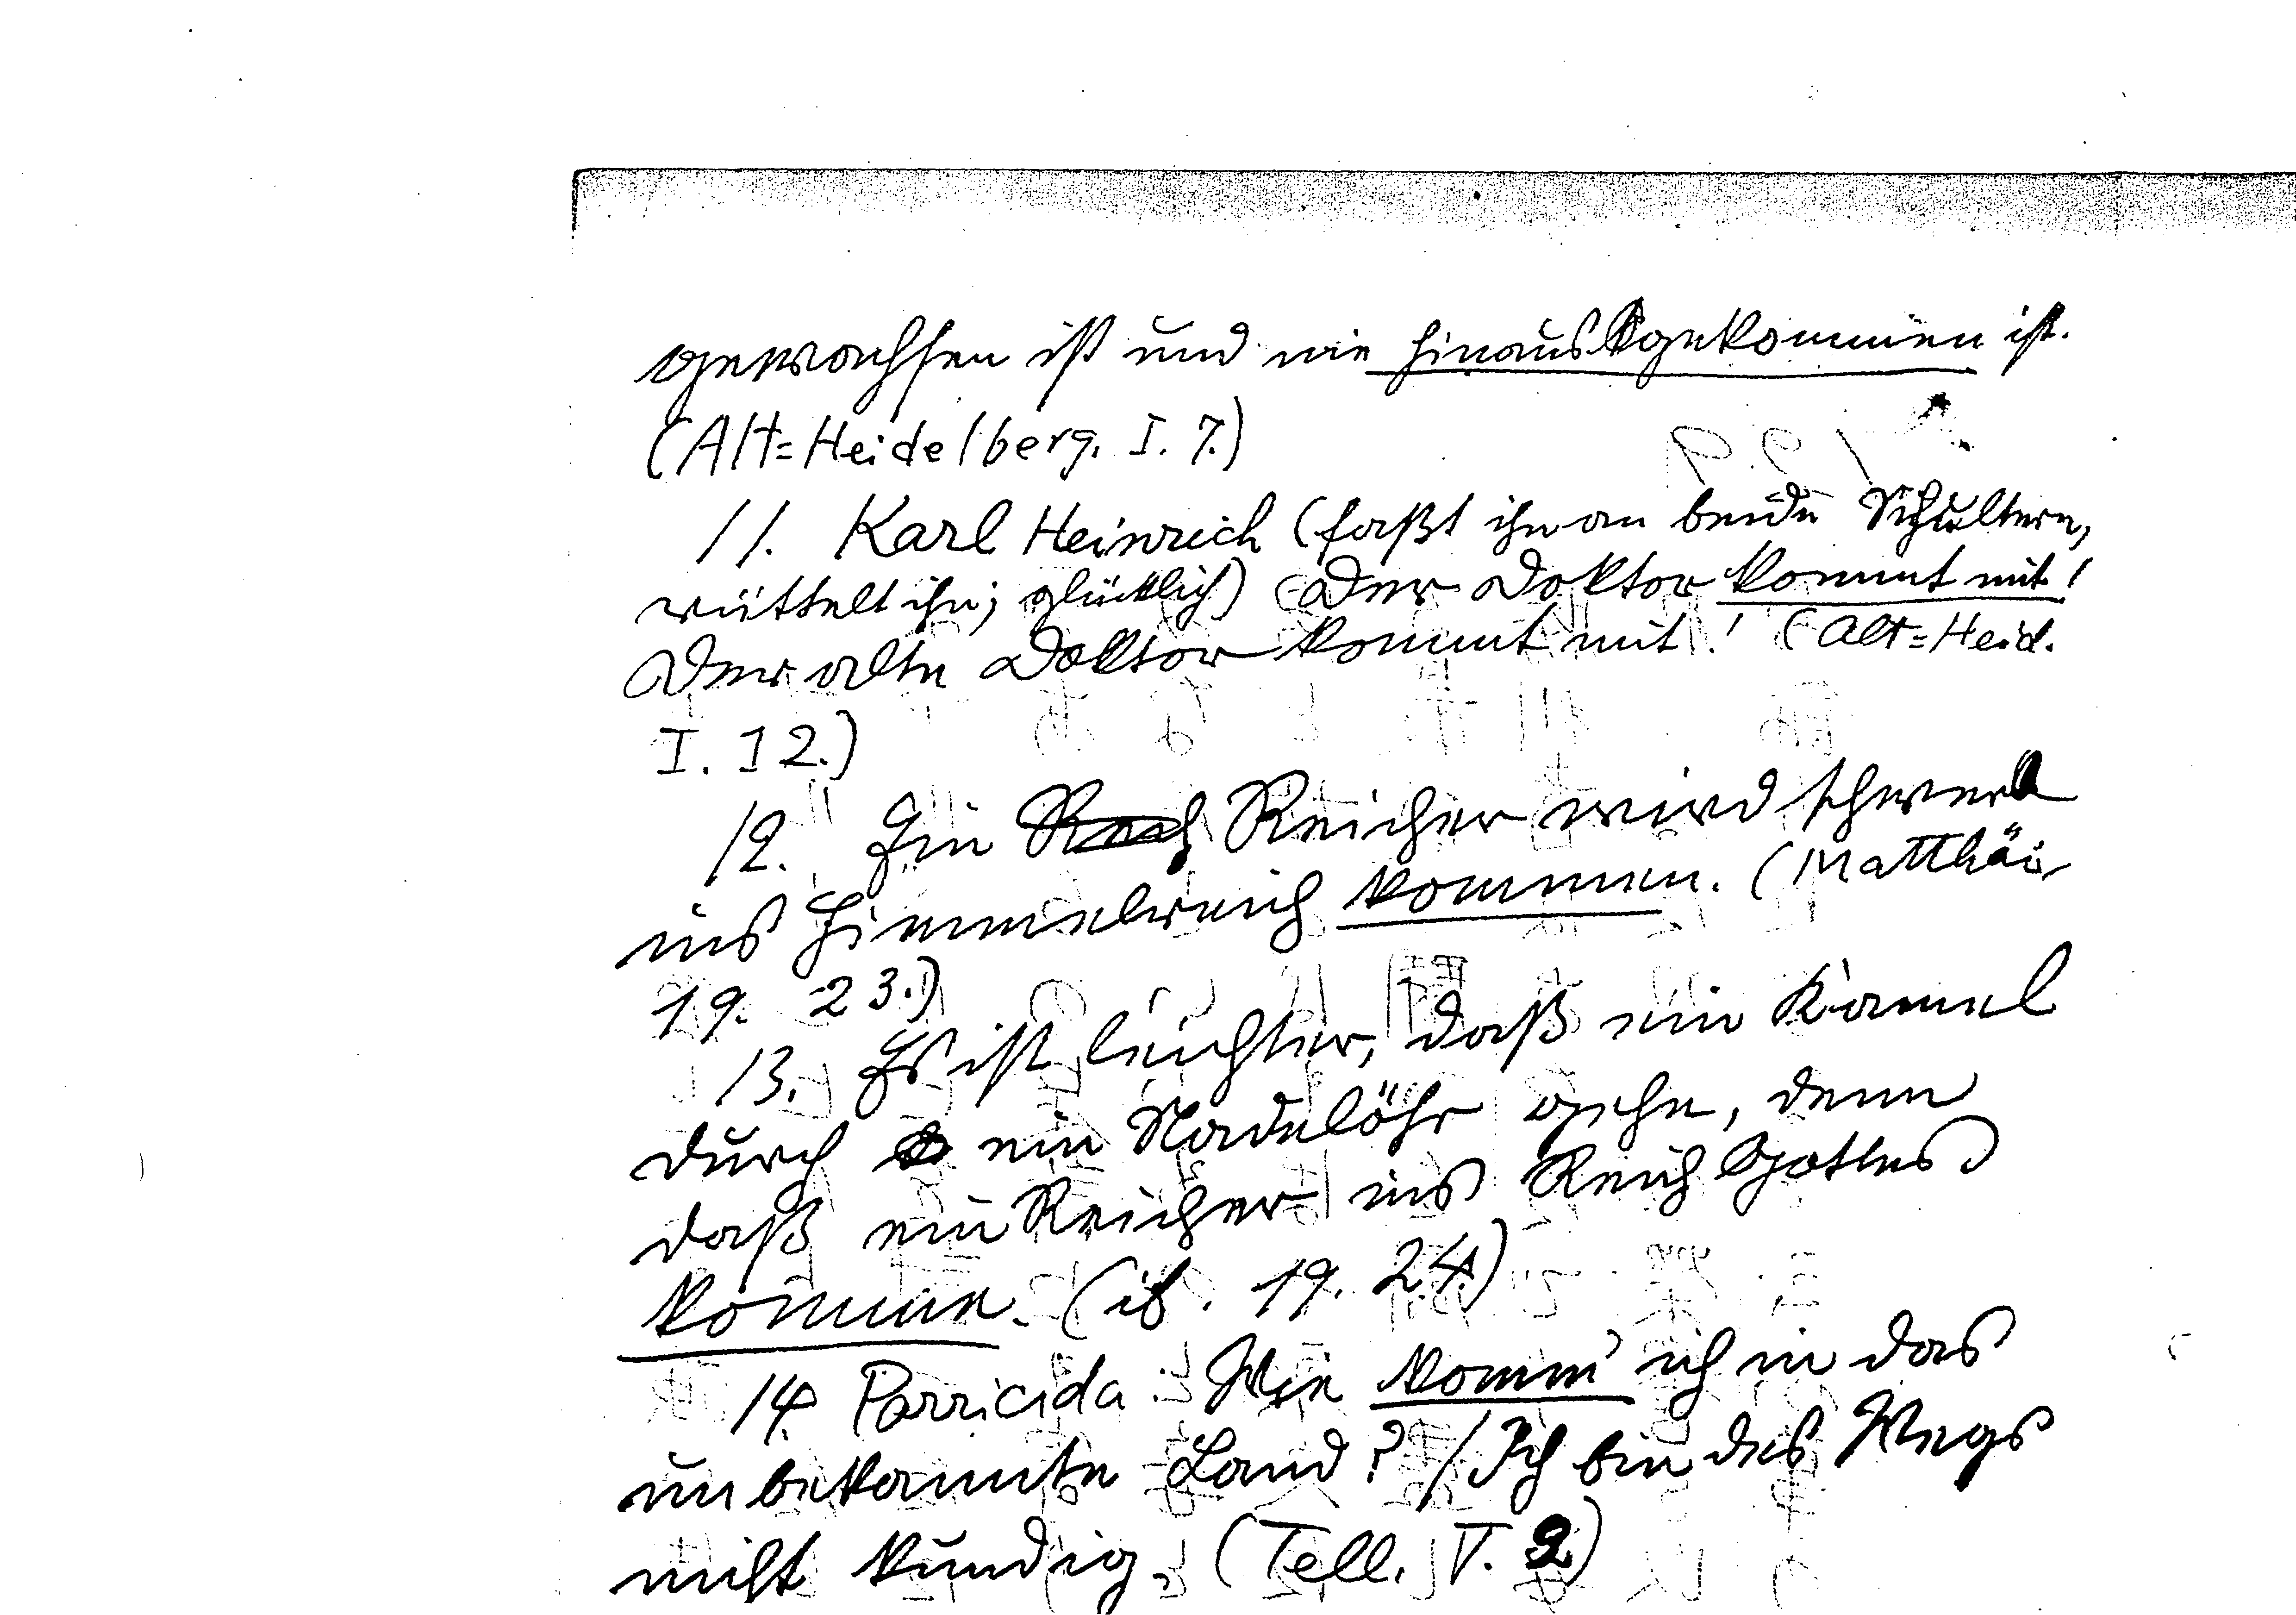 gewachsen ist und nie hinausgekommen ist.
(Alt=Heidelberg. I. 7.)
11. Karl Heinrich (faßt ihn an beide Schultern,
rüttelt ihn; glücklich) Der Doktor kommt mit!
Der alte Doktor kommt mit! (Alt=Heid.
I. 12.)
12. Ein Reicher wird schwer
ins Himmelreich kommen. (Matthäi
19. 23.)
13. Es ist leichter, daß ein Kamel
durch ein Nadelöhr gehe, denn
daß ein Reicher ins Reich Gottes
komme. (ib. 19. 24.)
14. Parricida: Wie komm' ich in das
unbekannte Land? / Ich bin des Wegs
nicht kundig. (Tell. V. 2)